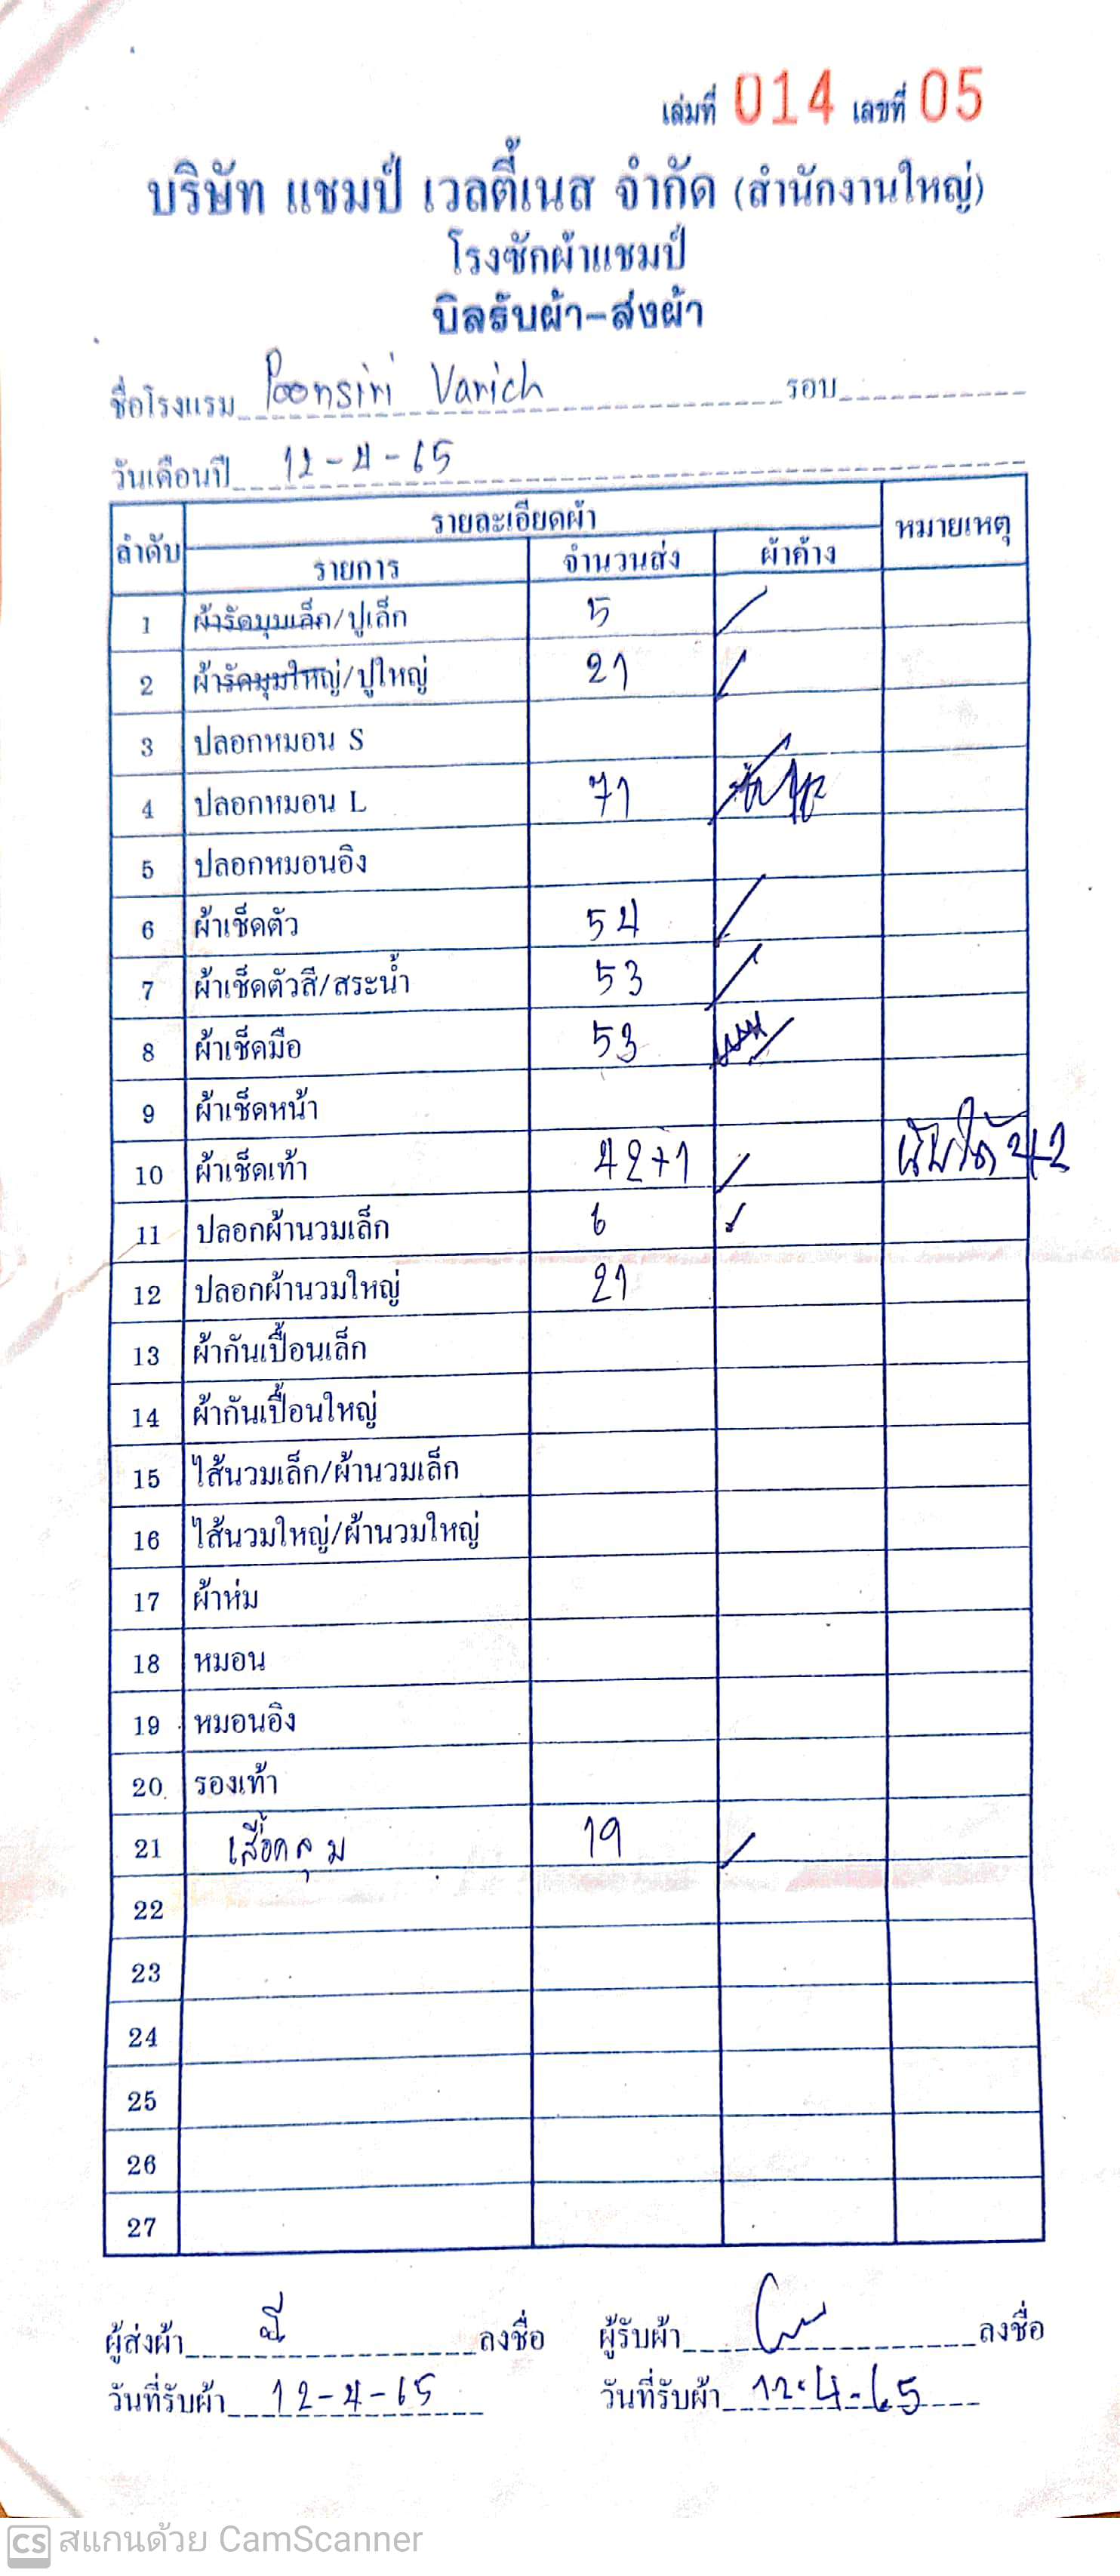 เล่มที่ 014 เลขที่ 05
บริษัท แชมป์ เวลตี้เนส จำกัด (สำนักงานใหญ่)
โรงซักผ้าแชมป์
บิลรับผ้า-ส่งผ้า
ชื่อโรงแรม Poonsiri Varich รอบ
วันเดือนปี 12-4-65
ลำดับ รายละเอียดผ้า หมายเหตุ
รายการ จำนวนส่ง ผ้าค้าง
1 ผ้ารัดมุมเล็ก/ปูเล็ก 5
2 ผ้ารัดมุมใหญ่/ปูใหญ่ 21
3 ปลอกหมอน S
4 ปลอกหมอน L 71
5 ปลอกหมอนอิง
6 ผ้าเช็ดตัว 54
7 ผ้าเช็ดตัวสี/สระน้ำ 53
8 ผ้าเช็ดมือ 53
9 ผ้าเช็ดหน้า
10 ผ้าเช็ดเท้า 42+1 นับได้ 42
11 ปลอกผ้านวมเล็ก 6
12 ปลอกผ้านวมใหญ่ 21
13 ผ้ากันเปื้อนเล็ก
14 ผ้ากันเปื้อนใหญ่
15 ไส้นวมเล็ก/ผ้านวมเล็ก
16 ไส้นวมใหญ่/ผ้านวมใหญ่
17 ผ้าห่ม
18 หมอน
19 หมอนอิง
20 รองเท้า
21 เสื้อคลุม 19
22
23
24
25
26
27
ผู้ส่งผ้า ลงชื่อ ผู้รับผ้า ลงชื่อ
วันที่รับผ้า 12-4-65 วันที่รับผ้า 12-4-65
CS สแกนด้วย CamScanner